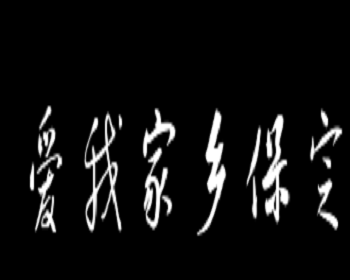 爱我家乡保定